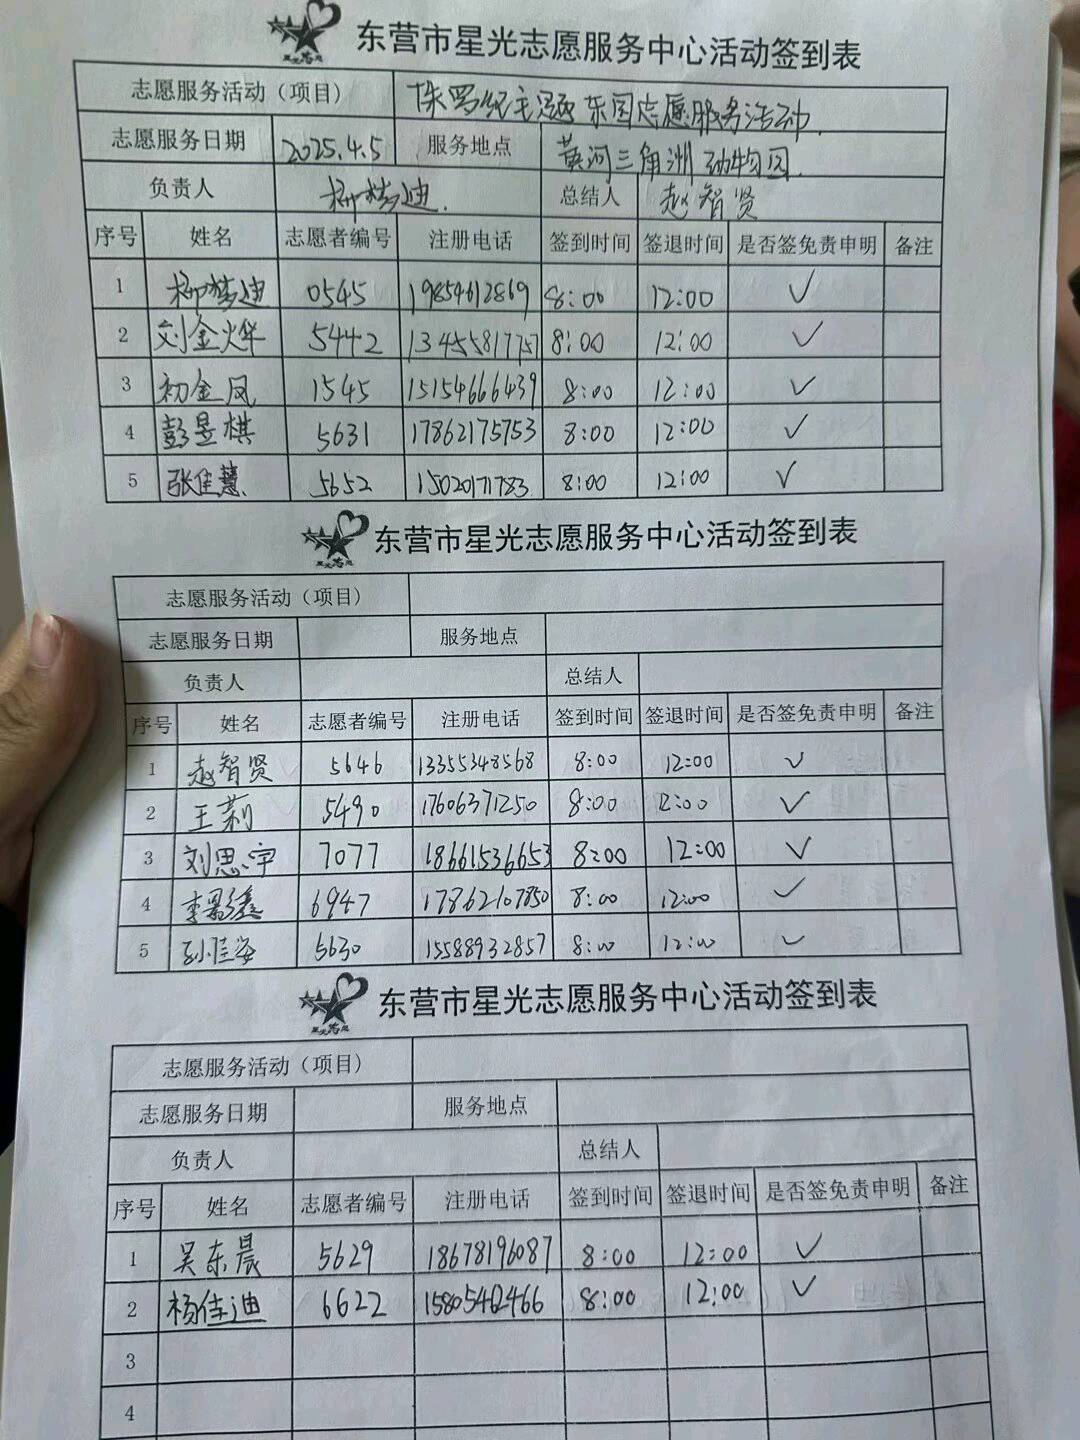 东营市星光志愿服务中心活动签到表
志愿服务活动（项目） 侏罗纪主题乐园志愿服务活动
志愿服务日期 2025.4.5 服务地点 黄河三角洲动物园
负责人 柳梦迪 总结人 赵智贤
序号 姓名 志愿者编号 注册电话 签到时间 签退时间 是否签免责申明 备注
1 柳梦迪 0545 19854612869 8:00 12:00 ✓
2 刘金烨 5442 13455817757 8:00 12:00 ✓
3 初金凤 1545 15154666439 8:00 12:00 ✓
4 彭昱棋 5631 17862175753 8:00 12:00 ✓
5 张佳慧 5652 15020171783 8:00 12:00 ✓
东营市星光志愿服务中心活动签到表
志愿服务活动（项目）
志愿服务日期 服务地点
负责人 总结人
序号 姓名 志愿者编号 注册电话 签到时间 签退时间 是否签免责申明 备注
1 赵智贤 5646 13355348568 8:00 12:00 ✓
2 王莉 5490 17606371250 8:00 12:00 ✓
3 刘思宇 7077 18661536653 8:00 12:00 ✓
4 李 6947 17862107850 8:00 12:00 ✓
5 孙佳 5630 15588932857 8:00 12:00 ✓
东营市星光志愿服务中心活动签到表
志愿服务活动（项目）
志愿服务日期 服务地点
负责人 总结人
序号 姓名 志愿者编号 注册电话 签到时间 签退时间 是否签免责申明 备注
1 吴东晨 5629 18678196087 8:00 12:00 ✓
2 杨佳迪 6622 15805462466 8:00 12:00 ✓
3
4